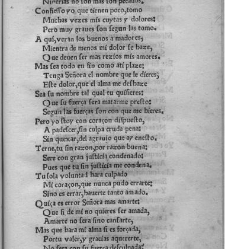 Confiesso yo, que tienen peco, tomo
Muchas vezes mis cuytas y dolores:
Pero muy graues son segun las tomo.
A qui, veran los buenos amadores,
Mientra de menos mi dolor se haze,
Que deuen ser mas rezios mis amores.
Mas sea todo en fin como assi plaze;
Tenga Señora el nombre que le dieres,
Este dolor, que el alma me deshaze
Sea su nombre tal qual tu quisieres:
Que su fuerça sera matarme presto:
Segun las fuerças son con que me hieres.
Pero yo estoy con coraçon dispuesto,
A padescer, sin culpa cruda pena:
Sin quexar, del agrauio que ay en esto.
Terne, tu sin razon, por razon buena:
Sere con gran justicia condenado:
Pues que tu sin justicia me condena.
Tu sola voluntad hara culpado
Mi coraçon, que nunca pudo errarte:
Sino es errar, hauerte tanto amado.
Quiça es error Señora mas amarte:
Que si de mi no quieres ser amada,
Amarte no sera sino enojarte.
Mas que hara mi alma si es forçada,
Por tu valor, y gracias aquererte,
No sera con su fuerça desculpada?